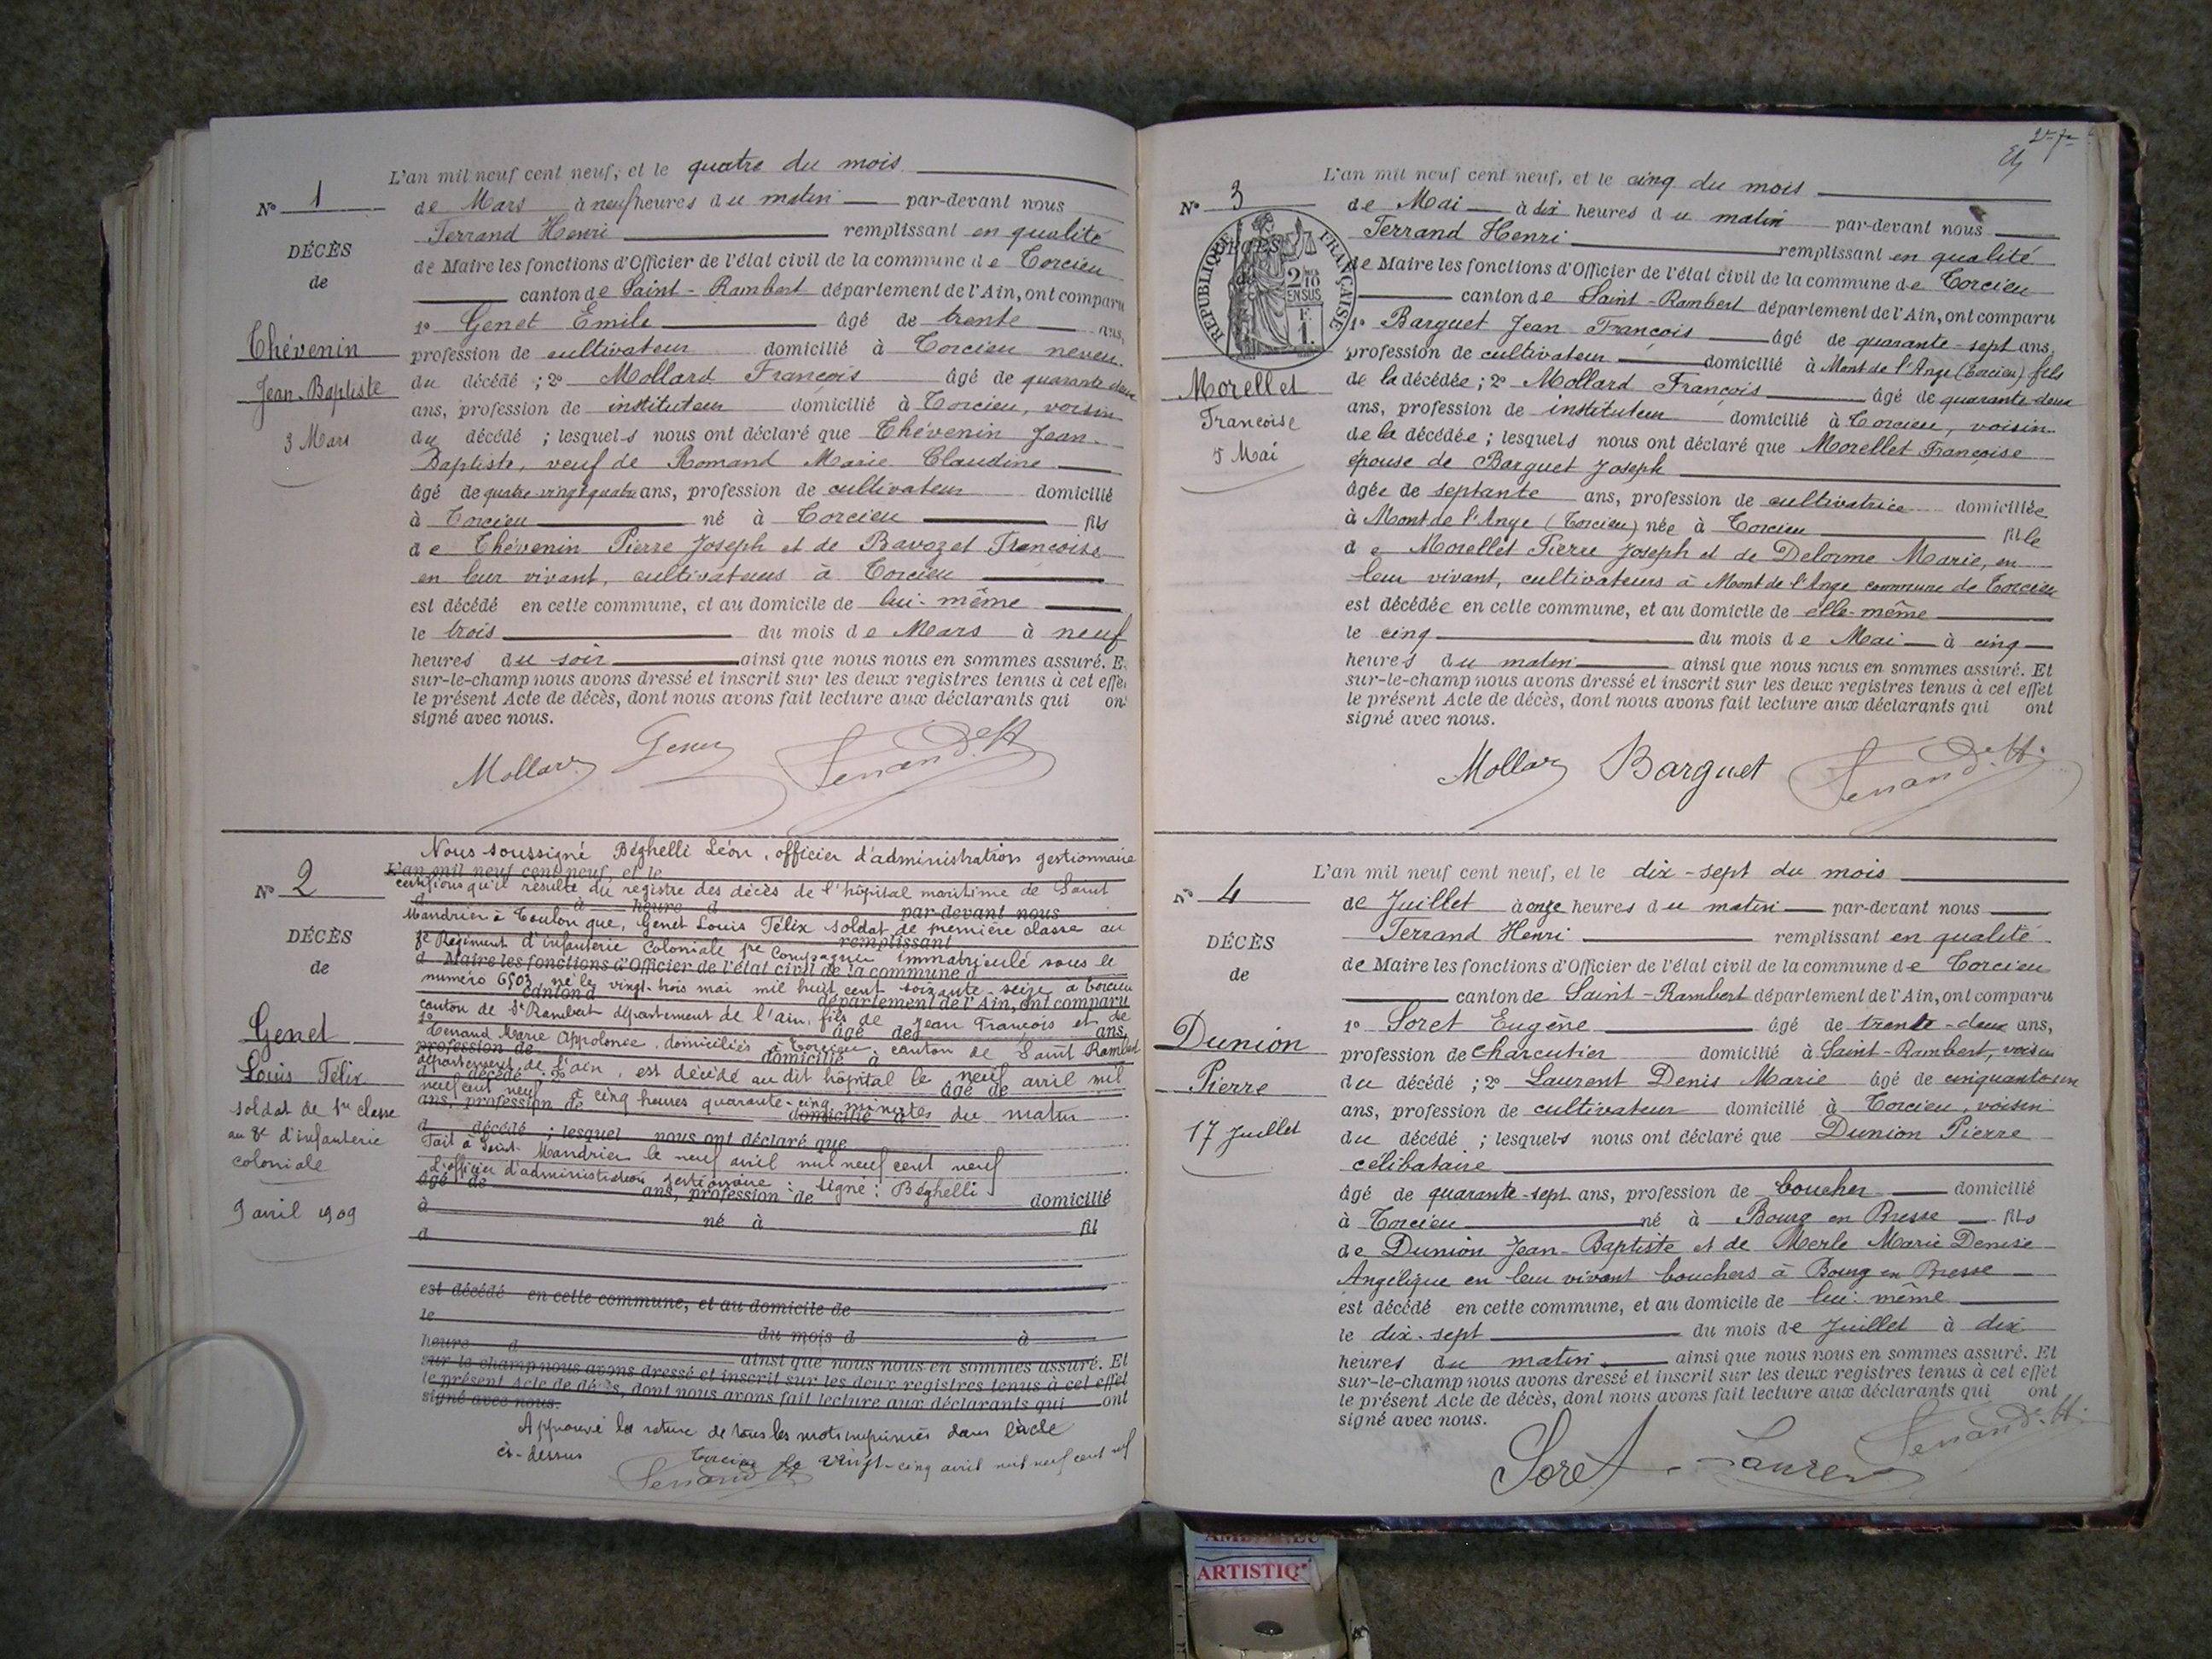 N° 1
DÉCÈS
de
Thévenin
Jean-Baptiste
3 Mars
L'an mil neuf cent neuf, et le quatre du mois
de Mars à neuf heures du matin par-devant nous
Ferrand Henri remplissant en qualité
de Maire les fonctions d'Officier de l'état civil de la commune de Torcieu
canton de Saint-Rambert département de l'Ain, ont comparu
1° Genet Emile âgé de trente ans,
profession de cultivateur domicilié à Torcieu neveu
du décédé ; 2° Mollard François âgé de quarante deux
ans, profession de instituteur domicilié à Torcieu, voisin
du décédé ; lesquels nous ont déclaré que Thévenin Jean-
Baptiste, veuf de Romand Marie Claudine
âgé de quatre-vingt quatre ans, profession de cultivateur domicilié
à Torcieu né à Torcieu fils
de Thévenin Pierre Joseph et de Bavozet Françoise
en leur vivant, cultivateurs à Torcieu
est décédé en cette commune, et au domicile de lui-même
le trois du mois de Mars à neuf
heures du soir ainsi que nous nous en sommes assuré. E
sur-le-champ nous avons dressé et inscrit sur les deux registres tenus à cet effe
le présent Acte de décès, dont nous avons fait lecture aux déclarants qui on
signé avec nous.
Mollard Genet Ferrand H
N° 2
DÉCÈS
de
Genet
Louis Félix
soldat de 1re classe
au 8e d'infanterie
coloniale
9 avril 1909
Nous soussigné Béghelli Léon, officier d'administration gestionnaire
L'an mil neuf cent neuf, et le
certifions qu'il résulte du registre des décès de l'hôpital maritime de Saint
d à heure d par-devant nous
Mandrier à Toulon que, Genet Louis Félix soldat de première classe au
remplissant
8e Régiment d'infanterie Coloniale 1re Compagnie immatriculé sous le
d Maire les fonctions d'Officier de l'état civil de la commune d
numéro 6503 né le vingt-trois mai mil huit cent soixante-seize à Torcieu
canton d département de l'Ain, ont comparu
canton de St Rambert département de l'ain, fils de Jean François et de
1° âgé de ans,
Marie Appolonie, domiciliés à Torcieu, canton de Saint Rambert
profession de domicilié à
département de l'ain, est décédé au dit hôpital le neuf avril mil
d décédé ; 2° âgé de
neuf cent neuf à cinq heures quarante-cinq minutes du matin
ans, profession de domicilié à
d décédé ; lesquel nous ont déclaré que
Fait à Saint-Mandrier le neuf avril mil neuf cent neuf
L'officier d'administration gestionnaire : signé : Béghelli
âgé de ans, profession de domicilié
à né à fil
d
est décédé en cette commune, et au domicile de
le du mois d à
heure d ainsi que nous nous en sommes assuré. Et
sur-le-champ nous avons dressé et inscrit sur les deux registres tenus à cet effet
le présent Acte de décès, dont nous avons fait lecture aux déclarants qui ont
signé avec nous.
Approuvé la rature de tous les mots imprimés dans l'acte
ci-dessus Torcieu le vingt-cinq avril mil neuf cent neuf
Ferrand H
N° 3
RÉPUBLIQUE FRANÇAISE
2/10
EN SUS
F.
1.
Morellet
Françoise
5 Mai
L'an mil neuf cent neuf, et le cinq du mois
de Mai à dix heures du matin par-devant nous
Ferrand Henri remplissant en qualité
de Maire les fonctions d'Officier de l'état civil de la commune de Torcieu
canton de Saint-Rambert département de l'Ain, ont comparu
1° Barguet Jean François âgé de quarante-sept ans,
profession de cultivateur domicilié à Mont de l'Ange (Torcieu) fils
de la décédée ; 2° Mollard François âgé de quarante-deux
ans, profession de instituteur domicilié à Torcieu, voisin
de la décédée ; lesquels nous ont déclaré que Morellet Françoise
épouse de Barguet Joseph
âgée de septante ans, profession de cultivatrice domiciliée
à Mont de l'Ange (Torcieu) née à Torcieu fille
de Morellet Pierre Joseph et de Delorme Marie, en
leur vivant, cultivateurs à Mont de l'Ange commune de Torcieu
est décédée en cette commune, et au domicile de elle-même
le cinq du mois de Mai à cinq
heures du matin ainsi que nous nous en sommes assuré. Et
sur-le-champ nous avons dressé et inscrit sur les deux registres tenus à cet effet
le présent Acte de décès, dont nous avons fait lecture aux déclarants qui ont
signé avec nous.
Mollard Barguet Ferrand H.
N° 4
DÉCÈS
de
Dunion
Pierre
17 Juillet
L'an mil neuf cent neuf, et le dix-sept du mois
de Juillet à onze heures du matin par-devant nous
Ferrand Henri remplissant en qualité
de Maire les fonctions d'Officier de l'état civil de la commune de Torcieu
canton de Saint-Rambert département de l'Ain, ont comparu
1° Soret Eugène âgé de trente-deux ans,
profession de charcutier domicilié à Saint-Rambert, voisin
du décédé ; 2° Laurent Denis Marie âgé de cinquante un
ans, profession de cultivateur domicilié à Torcieu, voisin
du décédé ; lesquels nous ont déclaré que Dunion Pierre
célibataire
âgé de quarante-sept ans, profession de boucher domicilié
à Torcieu né à Bourg en Bresse fils
de Dunion Jean-Baptiste et de Merle Marie Denise
Angélique en leur vivant bouchers à Bourg en Bresse
est décédé en cette commune, et au domicile de lui-même
le dix-sept du mois de Juillet à dix
heures du matin ainsi que nous nous en sommes assuré. Et
sur-le-champ nous avons dressé et inscrit sur les deux registres tenus à cet effet
le présent Acte de décès, dont nous avons fait lecture aux déclarants qui ont
signé avec nous.
Soret Laurent Ferrand H.
ARTISTIQ